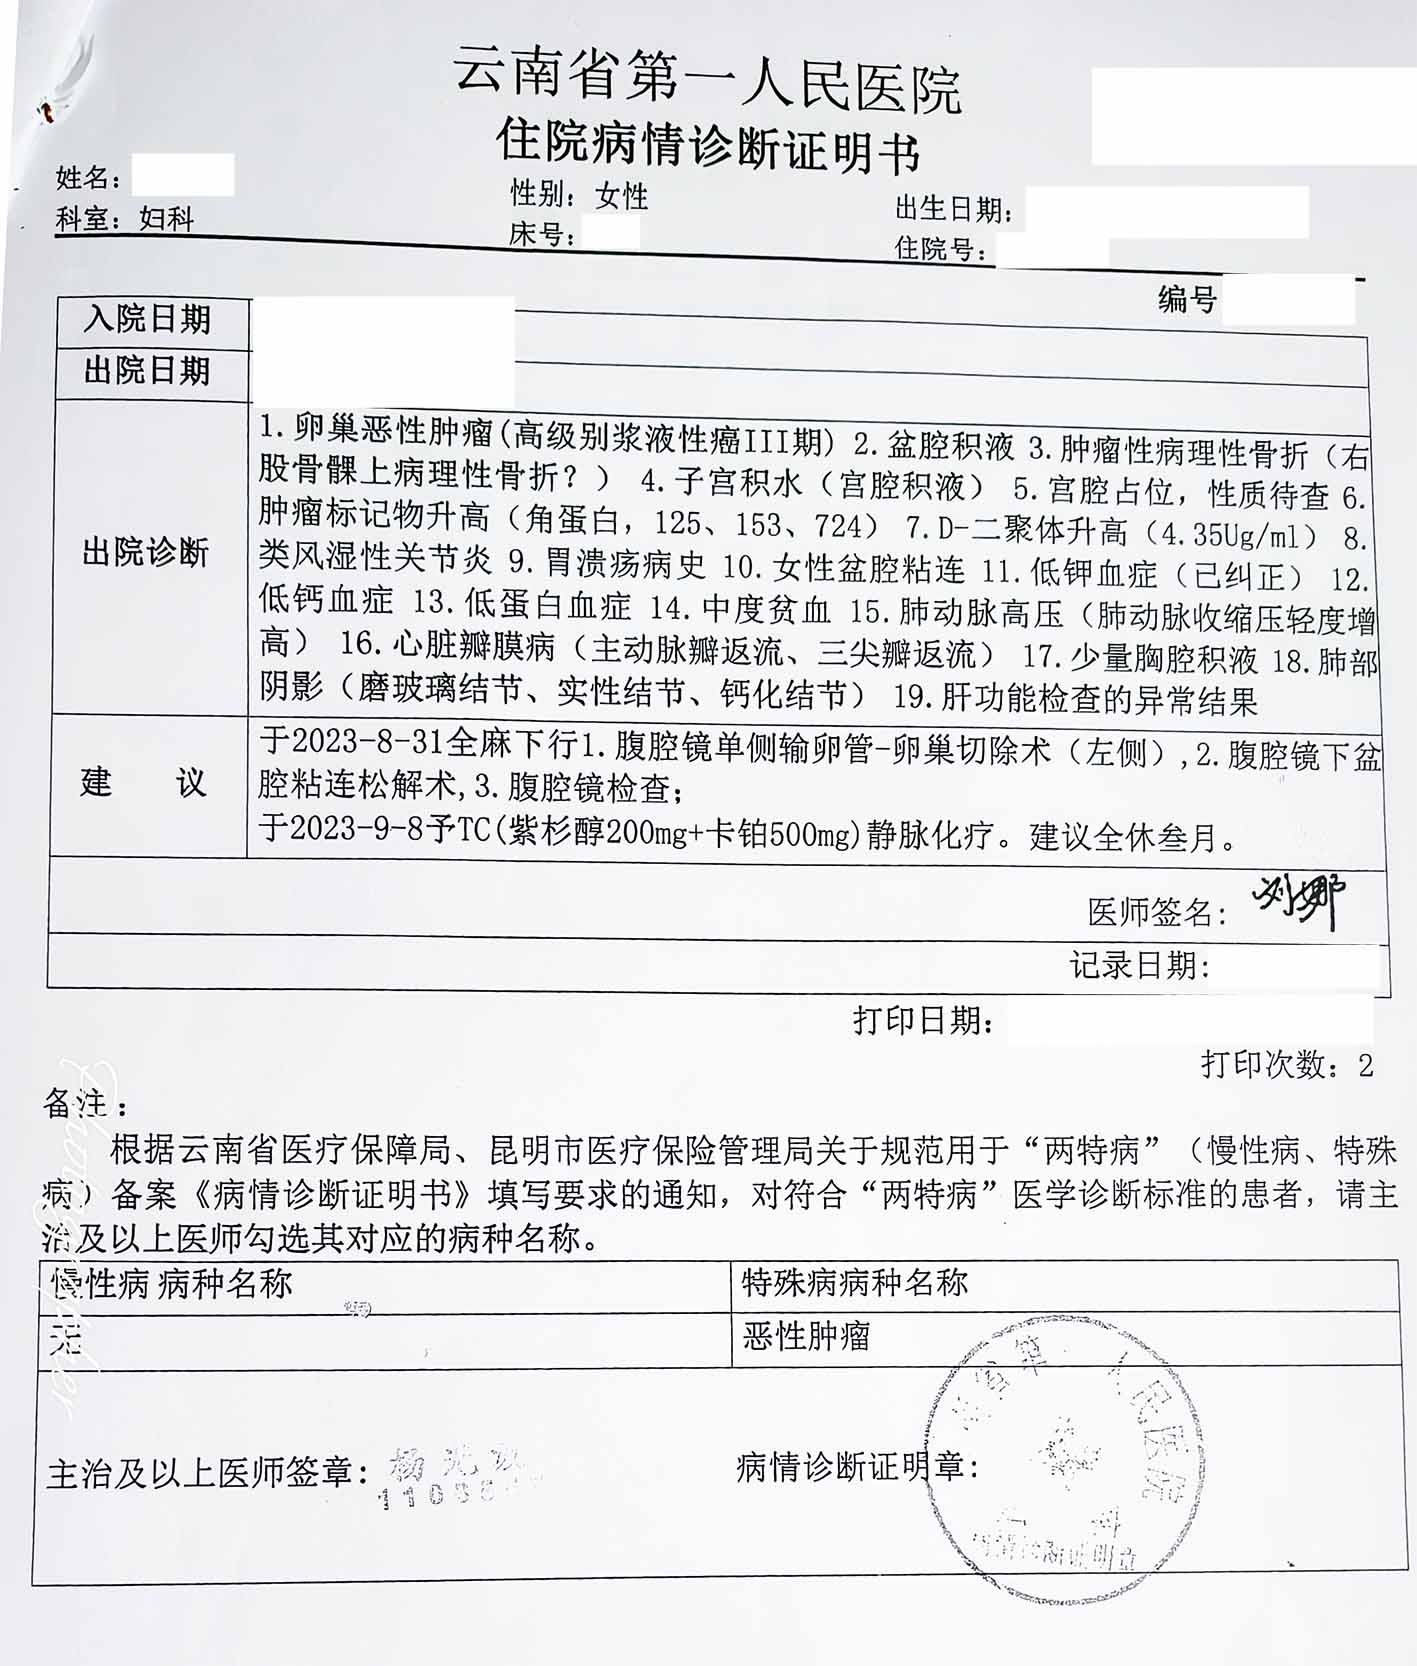 云南省第一人民医院
住院病情诊断证明书
姓名:
性别: 女性
出生日期:
科室: 妇科
床号:
住院号:
编号
入院日期
出院日期
出院诊断
1. 卵巢恶性肿瘤(高级别浆液性癌III期) 2. 盆腔积液 3. 肿瘤性病理性骨折（右
股骨髁上病理性骨折？） 4. 子宫积水（宫腔积液） 5. 宫腔占位，性质待查 6.
肿瘤标记物升高（角蛋白，125、153、724） 7. D-二聚体升高（4.35Ug/ml） 8.
类风湿性关节炎 9. 胃溃疡病史 10. 女性盆腔粘连 11. 低钾血症（已纠正） 12.
低钙血症 13. 低蛋白血症 14. 中度贫血 15. 肺动脉高压（肺动脉收缩压轻度增
高） 16. 心脏瓣膜病（主动脉瓣返流、三尖瓣返流） 17. 少量胸腔积液 18. 肺部
阴影（磨玻璃结节、实性结节、钙化结节） 19. 肝功能检查的异常结果
建 议
于2023-8-31全麻下行1. 腹腔镜单侧输卵管-卵巢切除术（左侧）, 2. 腹腔镜下盆
腔粘连松解术, 3. 腹腔镜检查；
于2023-9-8予TC(紫杉醇200mg+卡铂500mg)静脉化疗。建议全休叁月。
医师签名: 刘娜
记录日期:
打印日期:
打印次数: 2
备注：
根据云南省医疗保障局、昆明市医疗保险管理局关于规范用于“两特病”（慢性病、特殊
病）备案《病情诊断证明书》填写要求的通知，对符合“两特病”医学诊断标准的患者，请主
治及以上医师勾选其对应的病种名称。
慢性病 病种名称
特殊病病种名称
无
恶性肿瘤
主治及以上医师签章:
病情诊断证明章:
人民医院
Photographer